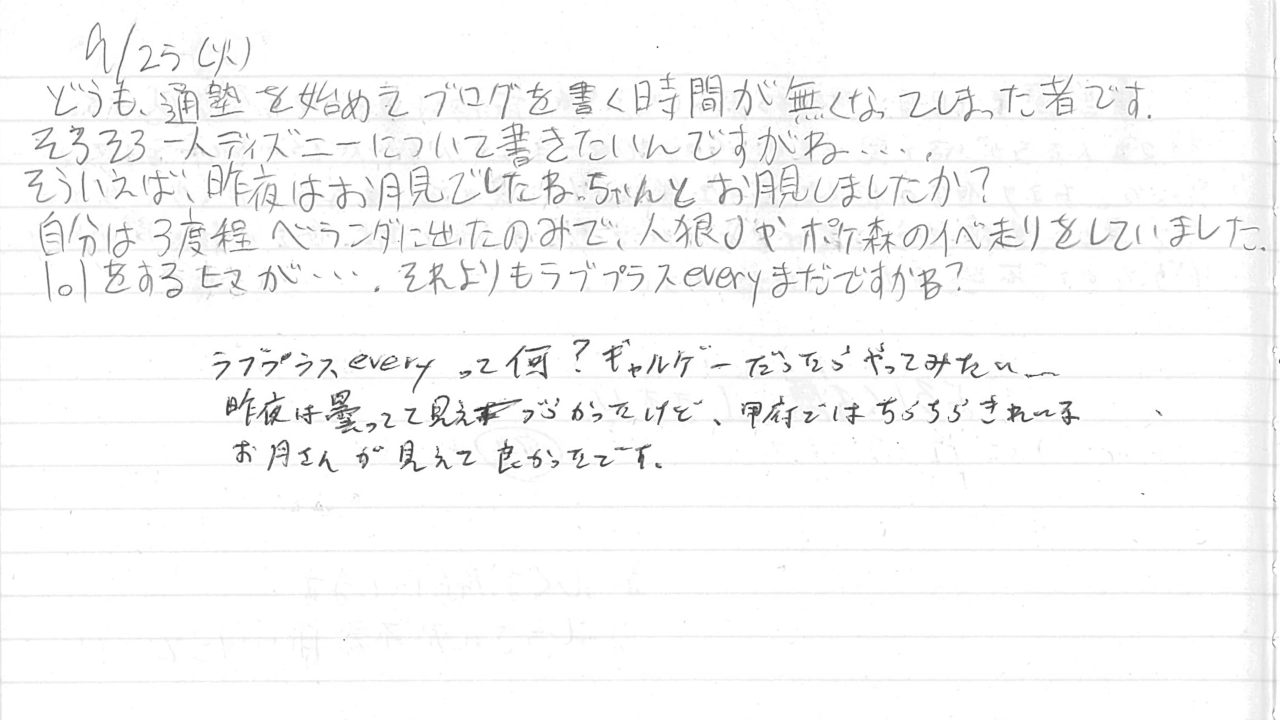 9/25(火)
どうも、通塾を始めてブログを書く時間が無くなってしまった者です.
そろそろ一人ディズニーについて書きたいんですがね….
そういえば、昨夜はお月見でしたね.ちゃんとお月見しましたか?
自分は3度程ベランダに出たのみで、人狼Jやポケ森のイベ走りをしていました.
lolをするヒマが….それよりもラブプラスeveryまだですかね?
ラブプラスeveryって何?ギャルゲーだったらやってみたい
昨夜は曇ってて見えづらかったけど、甲府ではちらちらきれいな
お月さんが見えて良かったです。